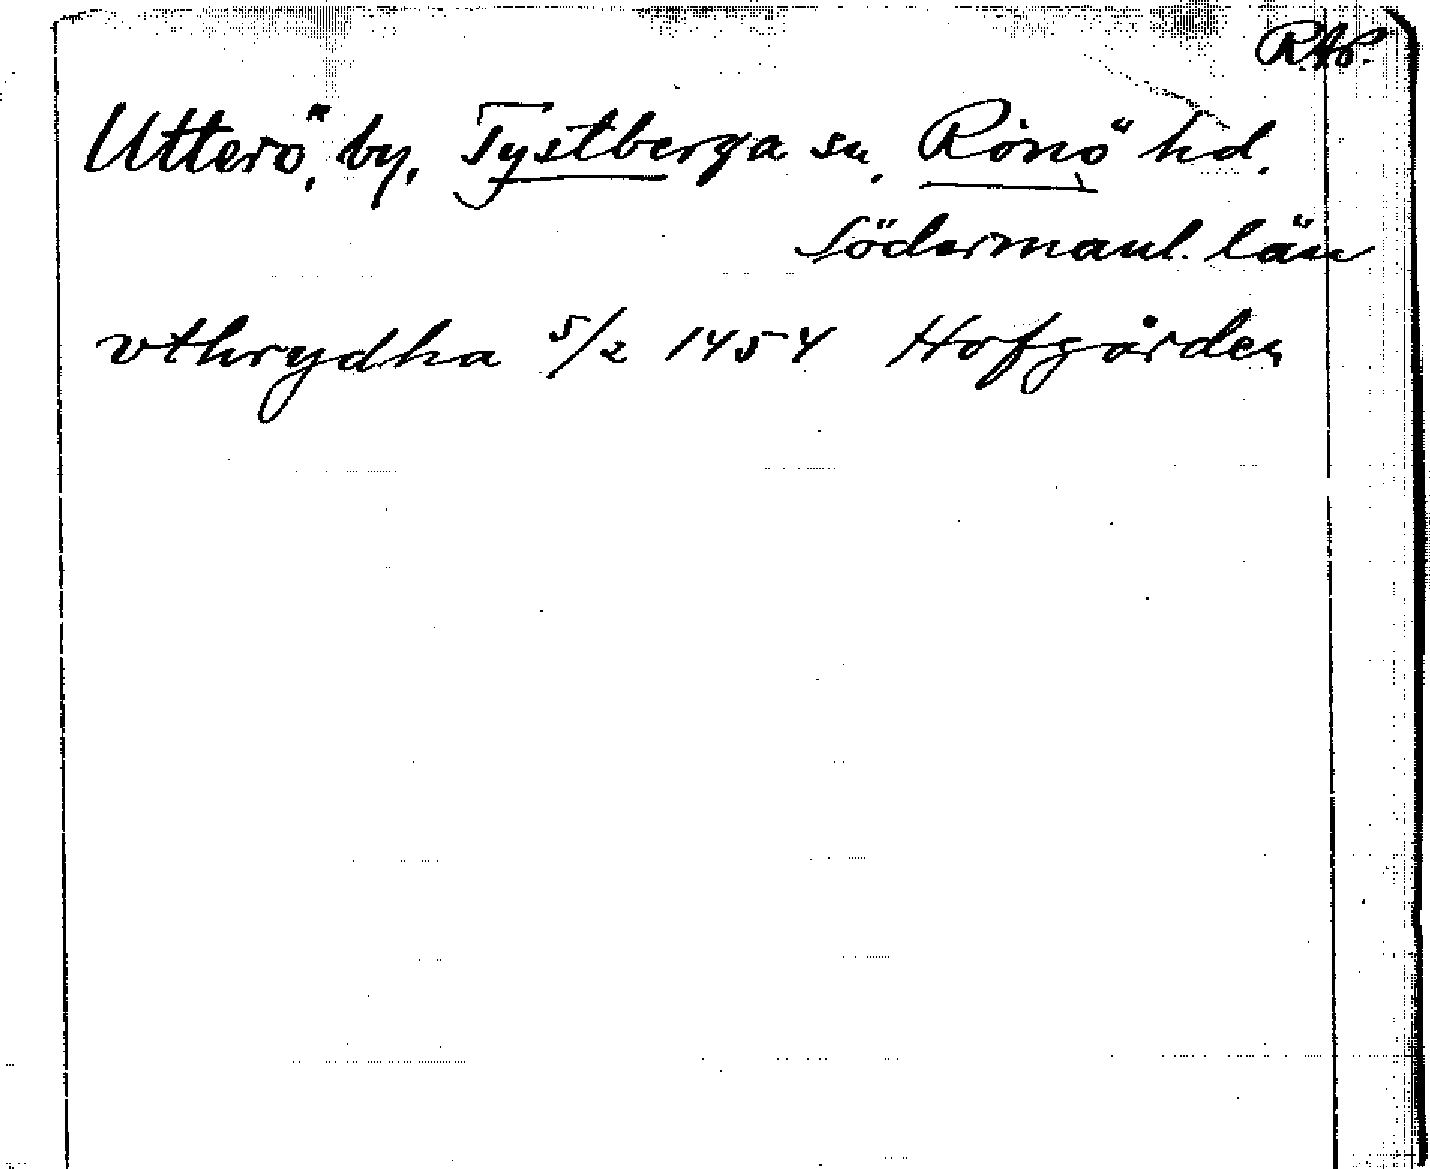 Utterö, by, Tystberga sn. Rönö hd.
Södermanl. län
vthrydha 5/2 1454 Hofgården